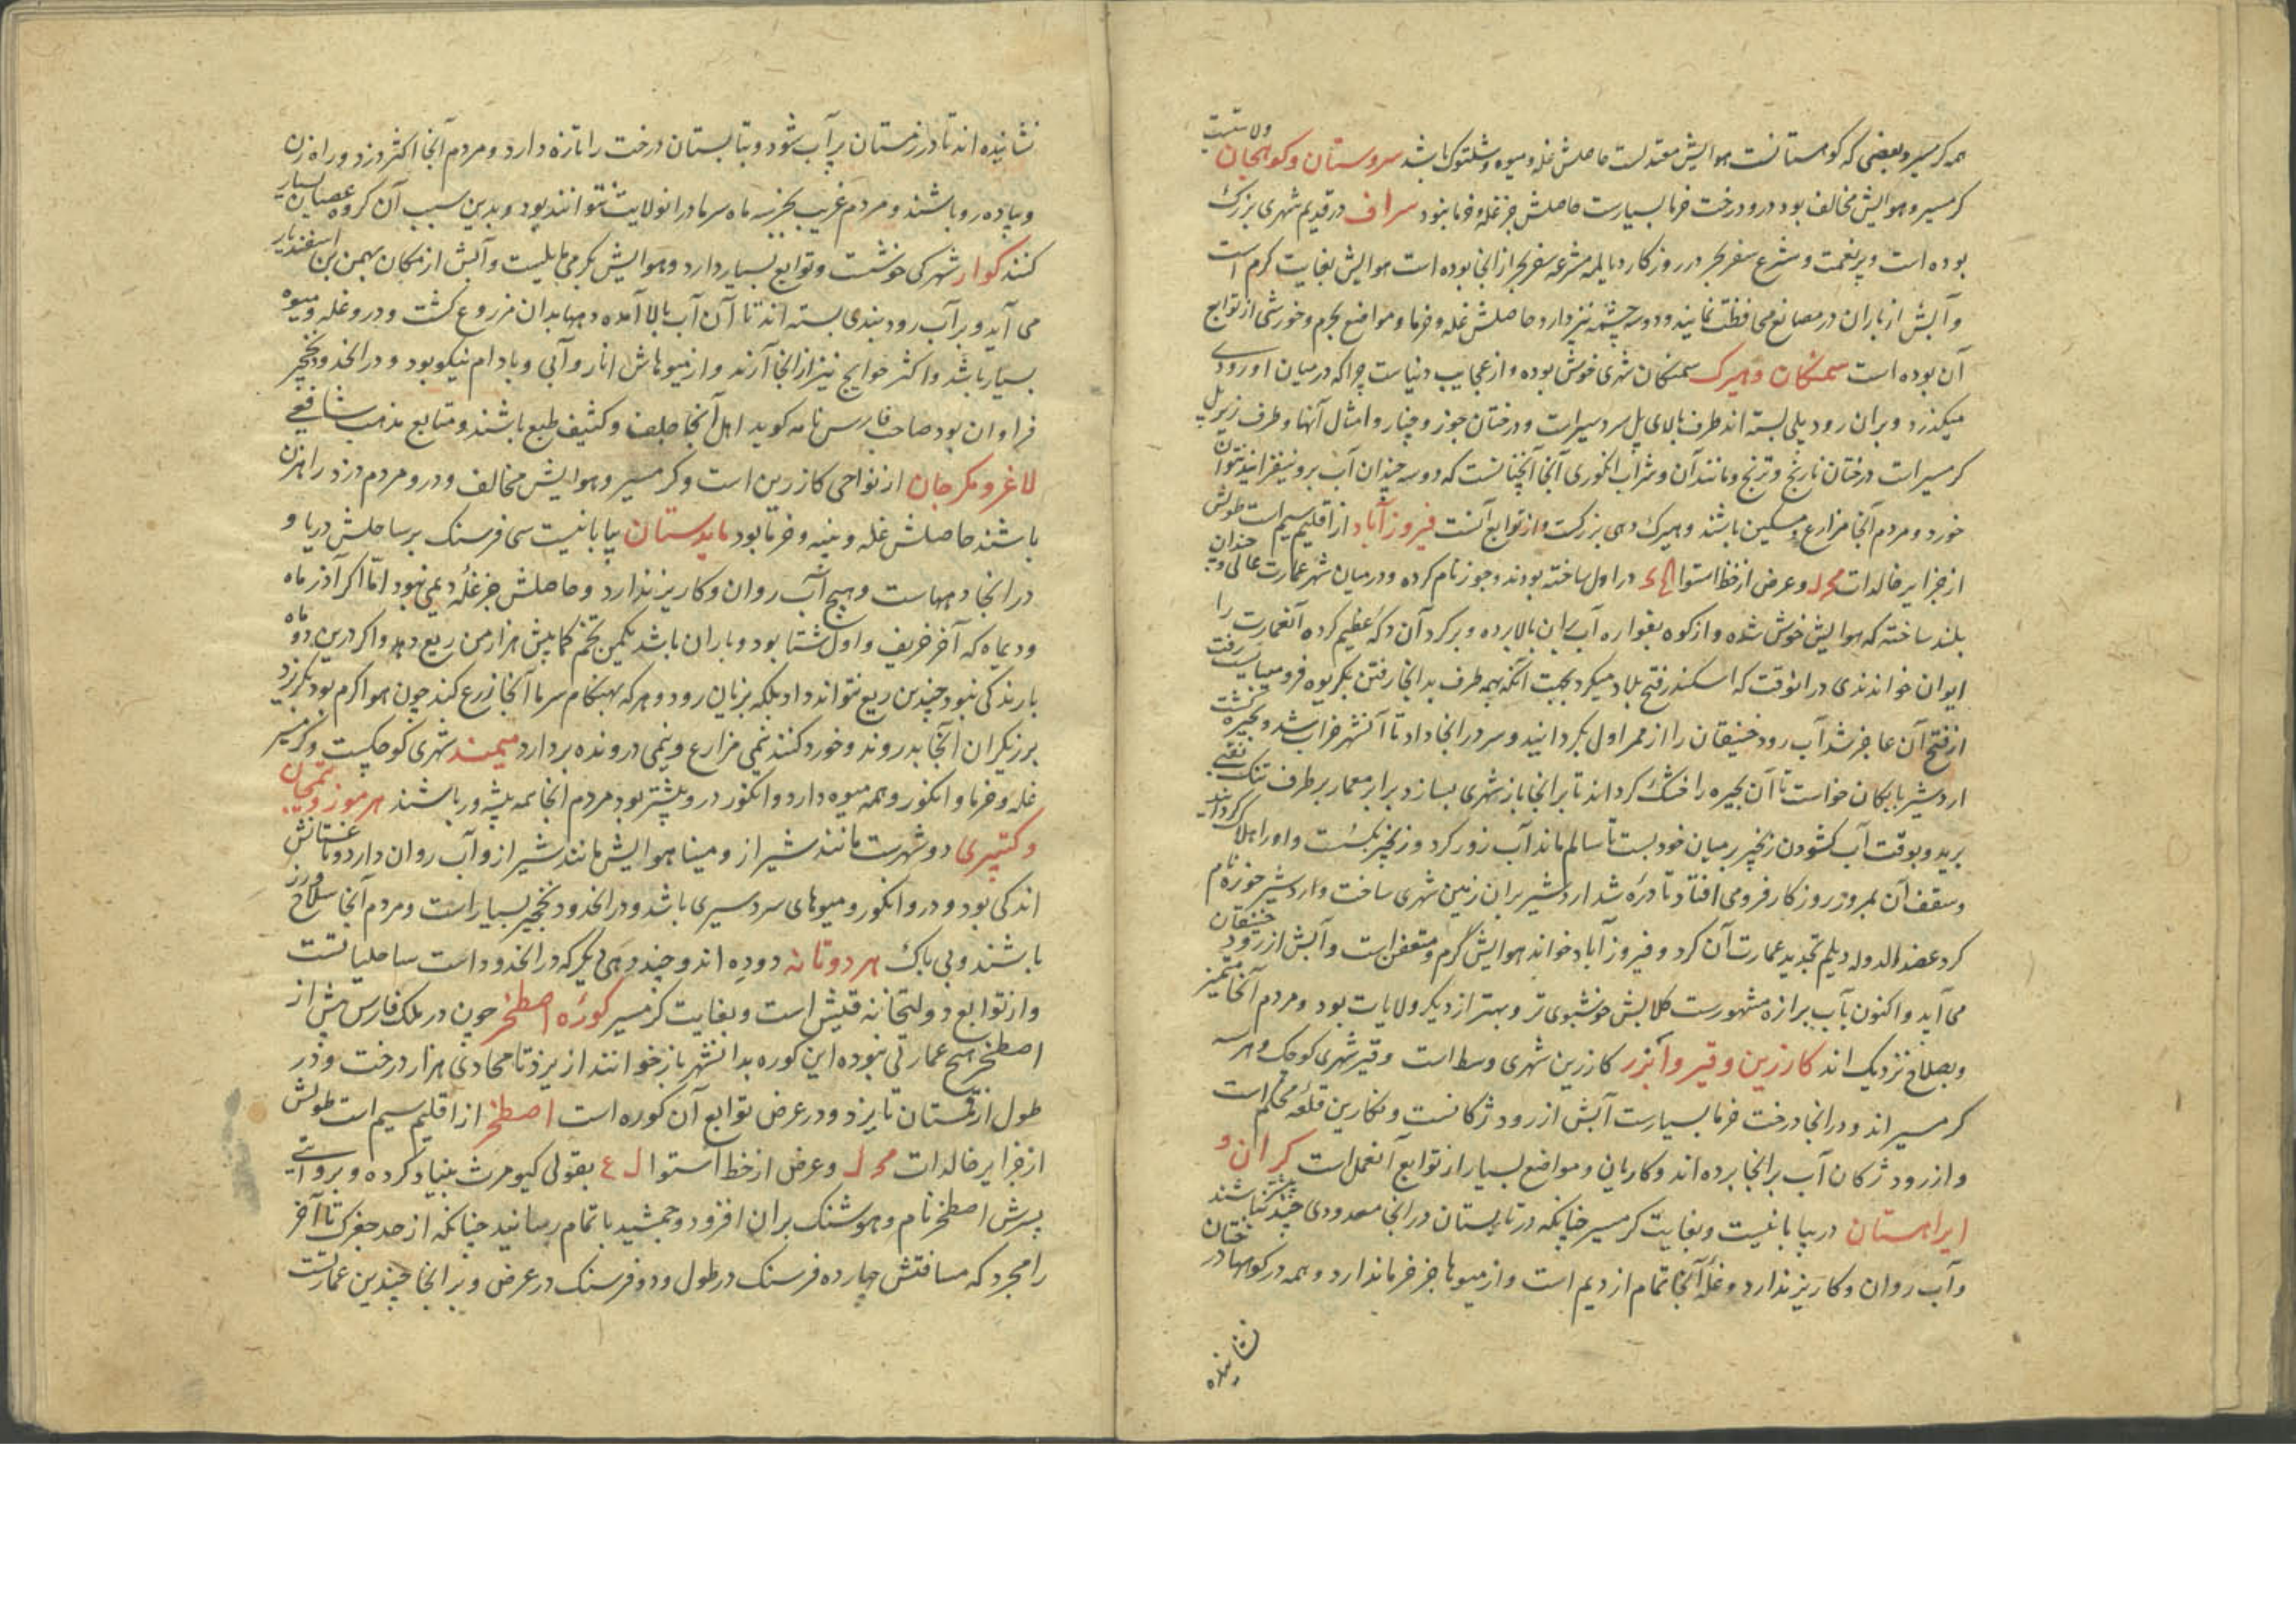 همه کرمسیر و بعضی که کوهستانست هوایش معتدلست حاصلش غله و میوه و شلتوک باشد سروستان و کوبنجان ولایتیست
کرمسیر و هوایش مخالف بود درو درخت خرما بسیارست حاصلش جز غله و خرما نبود سراف در قدیم شهری بزرک
بوده است و پر نعمت و مشرع سفر بحر در روزکار دیالمه مشرعه سفر بحر از انجا بوده است هوایش بغایت کرم است
و آبش از باران در مصانع محافظت نمایند و دو سه چشمه نیز دارد حاصلش غله و خرما و مواضع بجرم و خورشی از توابع
آن بوده است سمنکان و هیرک سمنکان شهری خوش بوده و از عجایب دنیاست چرا که در میان او رودی
میکذرد و بران رود پلی بسته اند طرف بالای پل سردسیرات و درختان جوز و چنار و امثال آنها و طرف زیر پل
کرمسیرات درختان نارنج و ترنج و مانند آن و شراب انکوری آنجا آنچنانست که دو سه چندان آب برو نیفزایند نتوان
خورد و مردم آنجا مزارع و مسکین باشند و هیرک دهی بزرکست و از توابع آنست فیروزآباد از اقلیم سیم است طولش
از جزایر خالدات و عرض از خط استوا در اول ساخته بودند و جور نام کرده و در میان شهر عمارت عالی و چندان
بلند ساخته که هوایش خوش شده و از کوه بفواره آب بران بالا برده و بر کرد آن دکه عظیم کرده آنعمارت را
ایوان خواندندی در انوقت که اسکندر فتح بلاد میکرد بجهت انکه بهمه طرف بدانجا رفتن بکریوه فرو میبایست رفت
از فتح آن عاجز شد آب رود خنیفقان را از ممر اول بکردانید و سر در انجا داد تا آنشهر خراب شد و بحیره کشت
اردشیر بابکان خواست تا آن بحیره را خشک کرداند تا بر انجا باز شهری بسازد برابر معمار بر طرف تنک نقبی
برید و بوقت آب کشودن زنجیر بر میان خود بست تا سالم ماند آب زور کرد و زنجیر بکسست و او را هلاک کردانید
و سقف آن بمرور روزکار فرو می افتاد تا دره شد اردشیر بران زمین شهری ساخت و اردشیر خوره نام
کرد عضد الدوله دیلم تجدید عمارت آن کرد و فیروزآباد خواند هوایش کرم و متعفن است و آبش از رود خنیفقان
می آید و اکنون بآب برازه مشهورست کلابش خوشبوی تر و بهتر از دیکر ولایات بود و مردم آنجا متمیز
و بصلاح نزدیک اند کازرین و قیر و ابزر کازرین شهری وسط است و قیر شهری کوچک و هر سه
کرمسیر اند و در انجا درخت خرما بسیارست آبش از رود زکانست و بکازرین قلعه محکم است
و از رود ژکان آب بر انجا برده اند و کاریان و مواضع بسیار از توابع آنعمل است کران و
ایراهستان در بیابانیست و بغایت کرمسیر چنانکه در تابستان در انجا معدودی چند بیشتر نباشند
و آب روان و کاریز ندارد و غله آنجا تمام از دیم است و از میوها جز خرما ندارد و همه در کوهها درختان
نشانیده
نشانیده اند تا در زمستان پر آب شود و بتابستان درخت را تازه دارد و مردم آنجا اکثر دزد و راه زن
و پیاده رو باشند و مردم غریب بجز سه ماه سرما در انولایت نتوانند بود و بدین سبب آن کروه عصیان بسیار
کنند کوار شهرکی خوشست و توابع بسیار دارد و هوایش بکرمی مایلست و آبش از مکان بهمن بن اسفندیار
می آید و بر آب رود بندی بسته اند تا آن آب بالا آمده و دیهها بدان مزروع کشت و درو غله و میوه
بسیار باشد و اکثر حوایج نیز از انجا آرند و از میوهاش انار و آبی و بادام نیکو بود و در انحدود نخجیر
فراوان بود صاحب فارس نامه کوید اهل آنجا جلف و کثیف طبع باشند و متابع مذهب شافعی
لاغر و مکرجان از نواحی کازرین است و کرمسیر و هوایش مخالف و درو مردم دزد راهزن
باشند حاصلش غله و پنبه و خرما بود ماندستان بیابانیست سی فرسنک بر ساحلش دریا و
در انجا دیهاست و هیچ آب روان و کاریز ندارد و حاصلش جز غله دیمی نبود اما اکر آذر ماه
و دیماه که آخر خریف و اول شتا بود و باران باشد یکمن تخم کمابیش هزار من ریع دهد و اکر درین دو ماه
بارندکی نبود چندین ریع نتواند داد بلکه بزیان رود و هر که بهنکام سرما آنجا زرع کند چون هوا کرم بود بکریزد
برزیکران آنجا بدروند و خورد کنند نیمی مزارع و نیمی درونده بردارد میمند شهری کوچکیست و کرمسیر
غله و خرما و انکور و همه میوه دارد و انکور درو بیشتر بود مردم آنجا همه پیشه ور باشند هرموز و تمیجان
و کتیری دو شهرست مانند شیراز و هوایش مانند شیراز و آب روان دارد و باغستانش
اندکی بود و درو انکور و میوهای سردسیری باشد و در انحدود نخجیر بسیار است و مردم آنجا سلاح ورز
باشند و بی باک هردوتانه دو دیه اند و چند دهی دیکر که در انحدود است ساحلیاتست
و از توابع دولتخانه قیش است و بغایت کرمسیر کوره اصطخر چون در ملک فارس پیش از
اصطخر هیچ عمارتی نبوده این کوره بدانشهر باز خوانند از یزد تا محاذی هزار درخت و در
طول از قهستان تا یزد و در عرض توابع آن کوره است اصطخر از اقلیم سیم است طولش
از جزایر خالدات و عرض از خط استوا بقولی کیومرث بنیاد کرده و بروایتی
پسرش اصطخر نام و هوشنک بران افزود و جمشید باتمام رسانید چنانکه از حد حفرک تا آخر
رامجرد که مسافتش چهارده فرسنک در طول و ده فرسنک در عرض و بر انجا چندین عمارتست